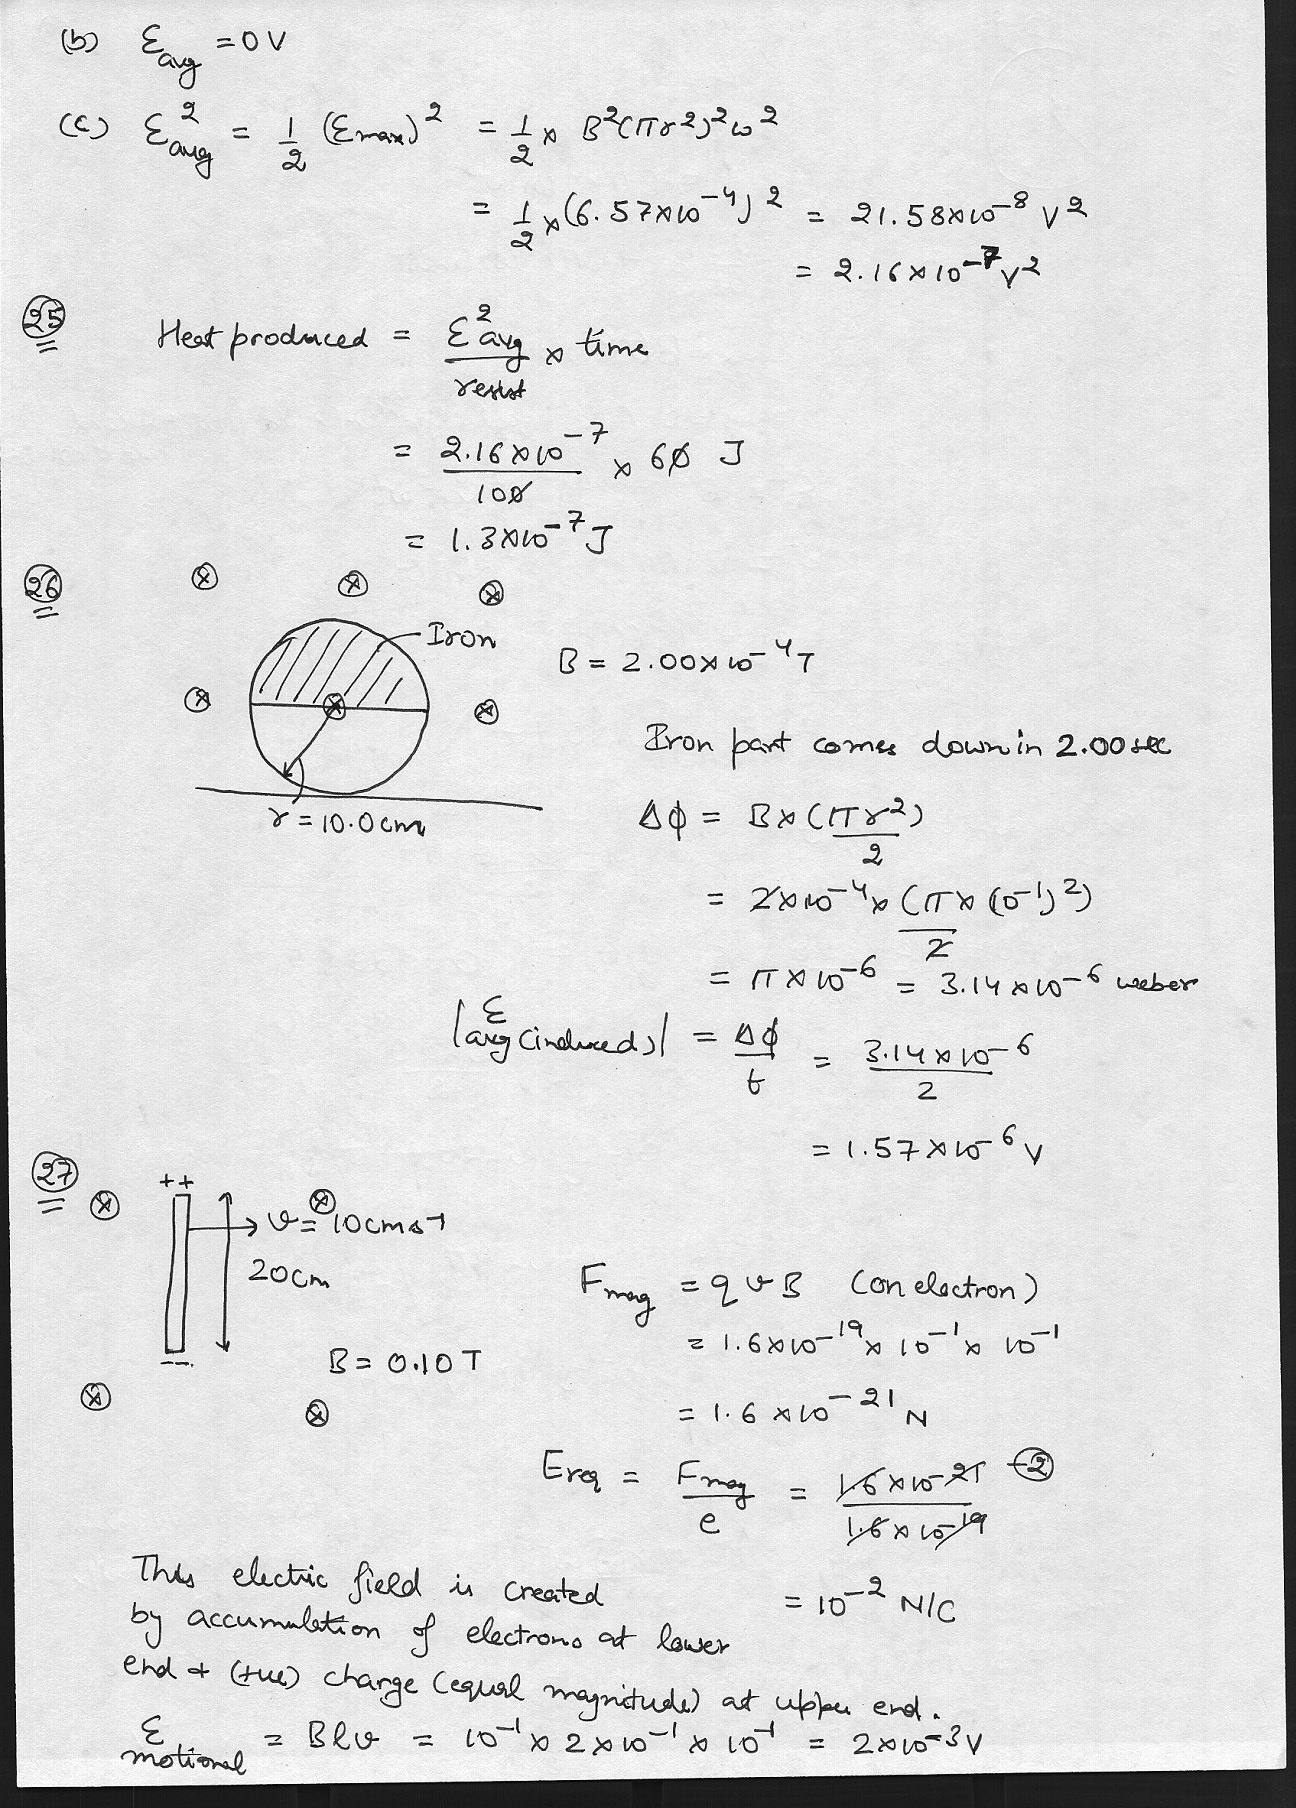 (b) ℰavg = 0 V
(c) ℰ²avg = 1/2 (ℰmax)² = 1/2 × B²(πr²)²ω²
= 1/2 × (6.57×10⁻⁴)² = 21.58×10⁻⁸ V²
= 2.16×10⁻⁷ V²
25
Heat produced = ℰ²avg/resist × time
= 2.16×10⁻⁷/100 × 60 J
= 1.3×10⁻⁷ J
26
Iron
B = 2.00×10⁻⁴ T
r = 10.0 cm
Iron part comes down in 2.00 sec
Δϕ = B×(πr²)/2
= 2×10⁻⁴×(π×(10⁻¹)²)/2
= π×10⁻⁶ = 3.14×10⁻⁶ weber
|ℰavg(induced)| = Δϕ/t = 3.14×10⁻⁶/2
= 1.57×10⁻⁶ V
27
++
v = 10 cm s⁻¹
20 cm
--
B = 0.10 T
Fmag = qvB (on electron)
= 1.6×10⁻¹⁹ × 10⁻¹ × 10⁻¹
= 1.6×10⁻²¹ N
Ereq = Fmag/e = 1.6×10⁻²¹/1.6×10⁻¹⁹ -2
= 10⁻² N/C
This electric field is created
by accumulation of electrons at lower
end + (+ve) charge (equal magnitude) at upper end.
ℰmotional = Blv = 10⁻¹ × 2×10⁻¹ × 10⁻¹ = 2×10⁻³ V